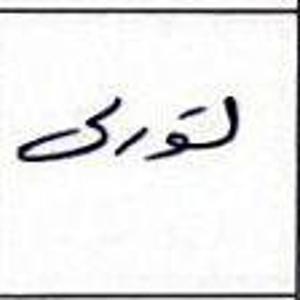 لتورى